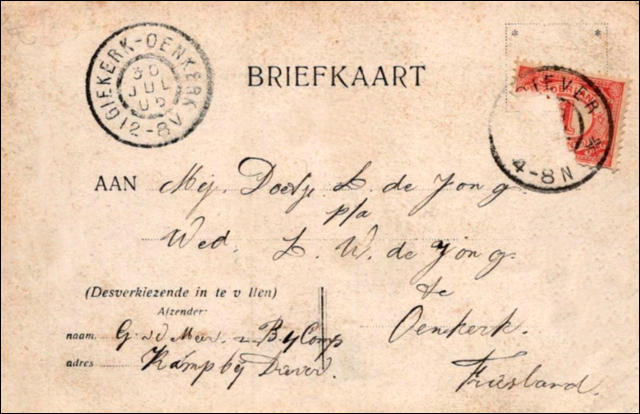 GIEKERK-OENKERK
30
JUL
05
12-8V
BRIEFKAART
DIEVER
4-8N
AAN Mej. Doetje L. de Jong.
p/a
Wed. L. W. de Jong.
te
Oenkerk.
Friesland.
(Desverkiezende in te v llen)
Afzender:
naam. G. v d Meer. Comp
adres Kamp bij Diever.